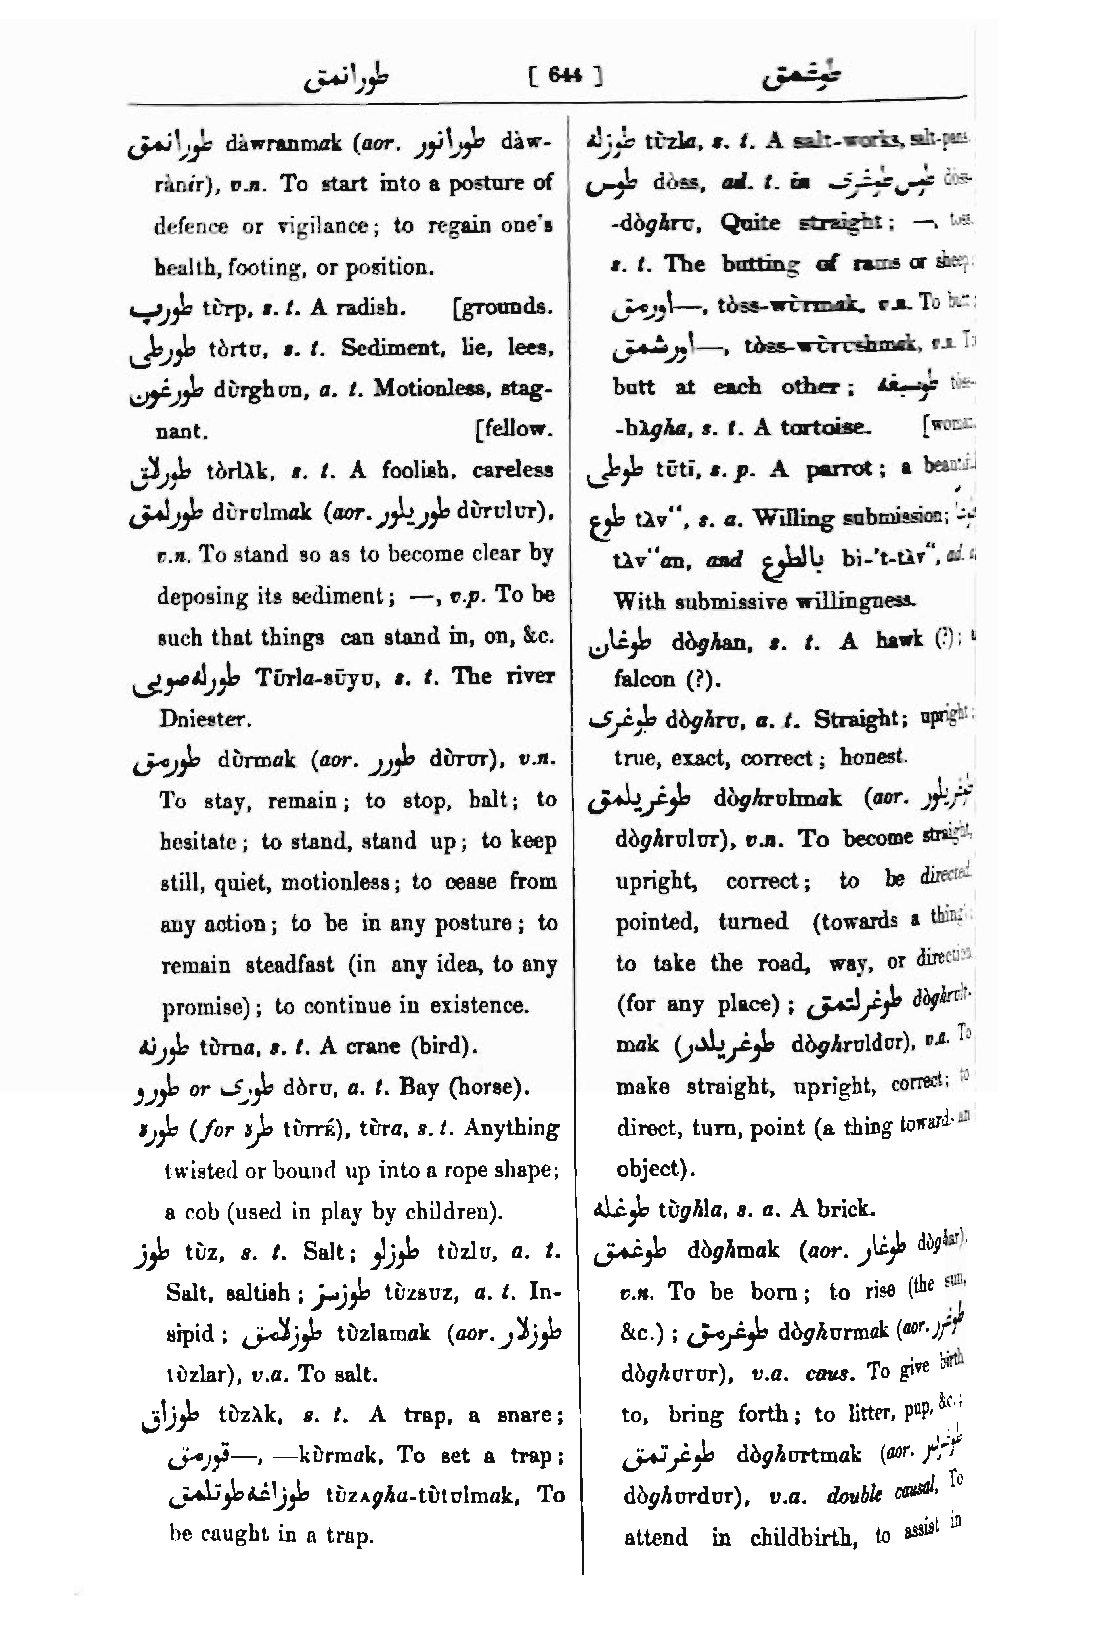 طورانمق [ 644 ] طوشمق
طورانمق dàwranmak (aor. طورانور dàw-
rànír), v.n. To start into a posture of
defence or vigilance; to regain one's
health, footing, or position.
طورپ tùrp, s. t. A radish. [grounds.
طورطی tòrtʊ, s. t. Sediment, lie, lees,
طورغون dùrghʊn, a. t. Motionless, stag-
nant. [fellow.
طورلاق tòrlλk, s. t. A foolish, careless
طورلمق dùrʊlmak (aor. طوریلور dùrʊlʊr),
v.n. To stand so as to become clear by
deposing its sediment; —, v.p. To be
such that things can stand in, on, &c.
طورله صویی Tūrla-sūyʊ, s. t. The river
Dniester.
طورمق dùrmak (aor. طورر dùrʊr), v.n.
To stay, remain; to stop, halt; to
hesitate; to stand, stand up; to keep
still, quiet, motionless; to cease from
any action; to be in any posture; to
remain steadfast (in any idea, to any
promise); to continue in existence.
طورنه tùrna, s. t. A crane (bird).
طورو or طوری dòrʊ, a. t. Bay (horse).
طوره (for طره tùrrá), tùra, s. t. Anything
twisted or bound up into a rope shape;
a cob (used in play by children).
طوز tùz, s. t. Salt; طوزلو tùzlʊ, a. t.
Salt, saltish; طوزسز tùzsʊz, a. t. In-
sipid; طوزلامق tùzlamak (aor. طوزلار
tùzlar), v.a. To salt.
طوزاق tùzλk, s. t. A trap, a snare;
قورمق—, —kùrmak, To set a trap;
طوزاغه طوتلمق tùzλgha-tùtʊlmak, To
be caught in a trap.
طوزله tùzla, s. t. A salt-works, salt-pans.
طوس dòss, ad. t. in طوس طوغری dòss-
-dòghrʊ, Quite straight; —, toss,
s. t. The butting of rams or sheep;
اورمق—, tòss-wùrmak, v.n. To butt;
اورشمق—, tòss-wùrʊshmak, v.n. To
butt at each other; طوسبغه tòss-
-bλgha, s. t. A tortoise. [woman.
طوطی tūtī, s. p. A parrot; a beautiful
طوع tλv“, s. a. Willing submission;
tλv“an, and بالطوع bi-'t-tλv“, ad. a.
With submissive willingness.
طوغان dòghan, s. t. A hawk (?); a
falcon (?).
طوغری dòghrʊ, a. t. Straight; upright;
true, exact, correct; honest.
طوغریلمق dòghrʊlmak (aor. طوغریلور
dòghrʊlʊr), v.n. To become straight,
upright, correct; to be directed,
pointed, turned (towards a thing);
to take the road, way, or direction
(for any place); طوغرلتمق dòghrʊlt-
mak (طوغریلدر dòghrʊldʊr), v.a. To
make straight, upright, correct; to
direct, turn, point (a thing toward an
object).
طوغله tùghla, s. a. A brick.
طوغمق dòghmak (aor. طوغار dòghar),
v.n. To be born; to rise (the sun,
&c.); طوغرمق dòghʊrmak (aor. طوغرر
dòghʊrʊr), v.a. caus. To give birth
to, bring forth; to litter, pup, &c.;
طوغرتمق dòghʊrtmak (aor.
dòghʊrdʊr), v.a. double causal, To
attend in childbirth, to assist in